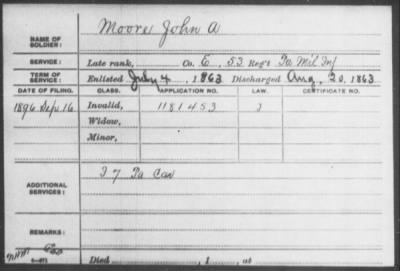 Moore John A
NAME OF SOLDIER:
SERVICE: Late rank, Co. E, 53 Reg't Pa Mil Inf
TERM OF SERVICE Enlisted July 4, 1863 Discharged Aug. 20, 1863
DATE OF FILING. CLASS. APPLICATION NO. LAW. CERTIFICATE NO.
1896 Sep 16 Invalid, 1181453 J
Widow,
Minor,
ADDITIONAL SERVICES: I 7 Pa Cav
REMARKS:
Died , 1 , at